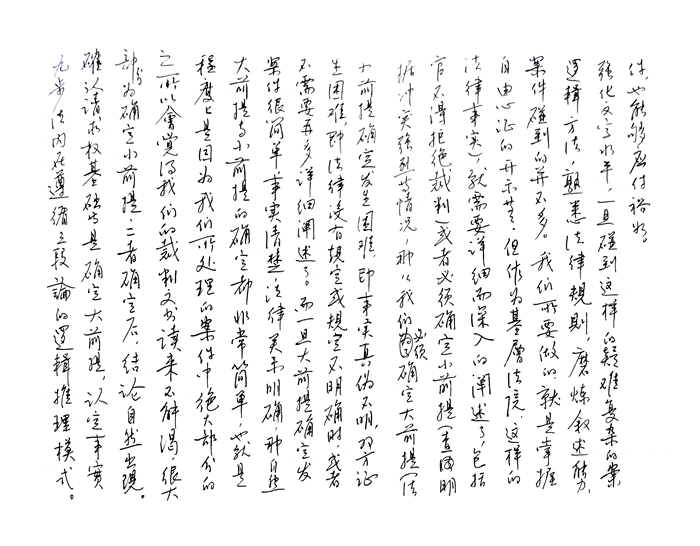 九步法内在遵循三段論的邏輯推理模式。
確认请求权基础当是確定大前提,认定事實
部分为確定小前提,二者確定后,结论自然出現。
之所以會觉得我们的裁判文书读来不解渴,很大
程度上是因为我们所处理的案件中绝大部分的
大前提与小前提的確定都非常简单,也就是
案件很简单,事实清楚,法律关系明確,那自然
不需要再多详细阐述了。而一旦大前提確定发
生困难,即法律没有规定或规定不明確时,或者
小前提確定发生困难,即事实真伪不明,双方证
据冲突强烈等情况,那么我们必须確定大前提(法
官不得拒绝裁判)或者必须確定小前提(查清明
法律事实),就需要详细而深入的阐述了,包括
自由心证的开示等。但作为基層法院,这样的
案件碰到的并不多。我们所要做的,就是掌握
逻辑方法,熟悉法律规则,磨炼叙述能力,
强化文字水平,一旦碰到这样的疑难复杂的案
件,也能够应付裕如。